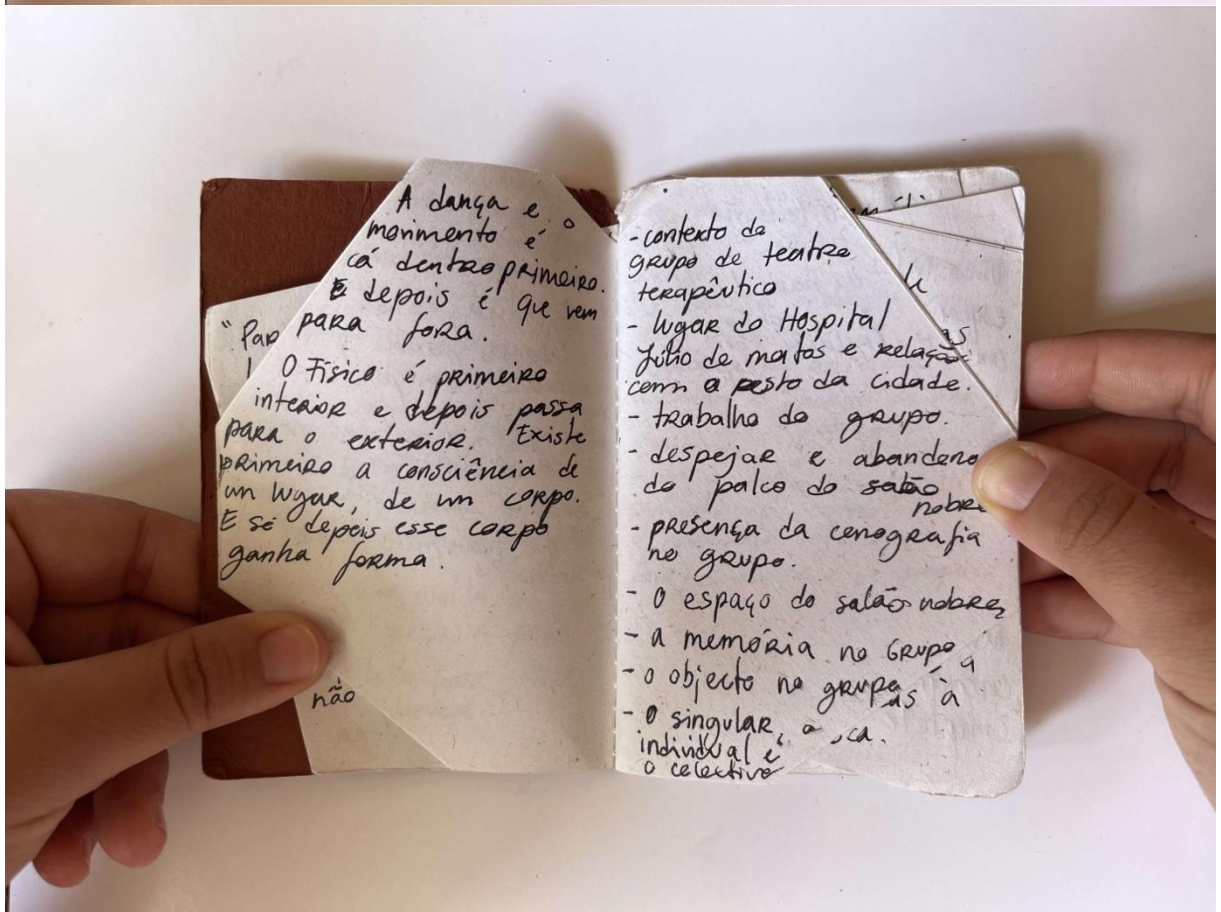 A dança e o
movimento é
cá dentro primeiro.
E depois é que vem
para fora.
O Físico é primeiro
interior e depois passa
para o exterior. Existe
primeiro a consciência de
um lugar, de um corpo.
E só depois esse corpo
ganha forma.
"Par
não
- contexto do
grupo de teatro
terapêutico
- lugar do Hospital
Júlio de matos e relação
com o resto da cidade.
- trabalho do grupo.
- despejar e abandono
do palco do salão
nobre
- presença da cenografia
no grupo.
- o espaço do salão nobre
- a memória no Grupo
- o objecto no grupo
- o singular, o
individual e
o colectivo
as
as à
ca.